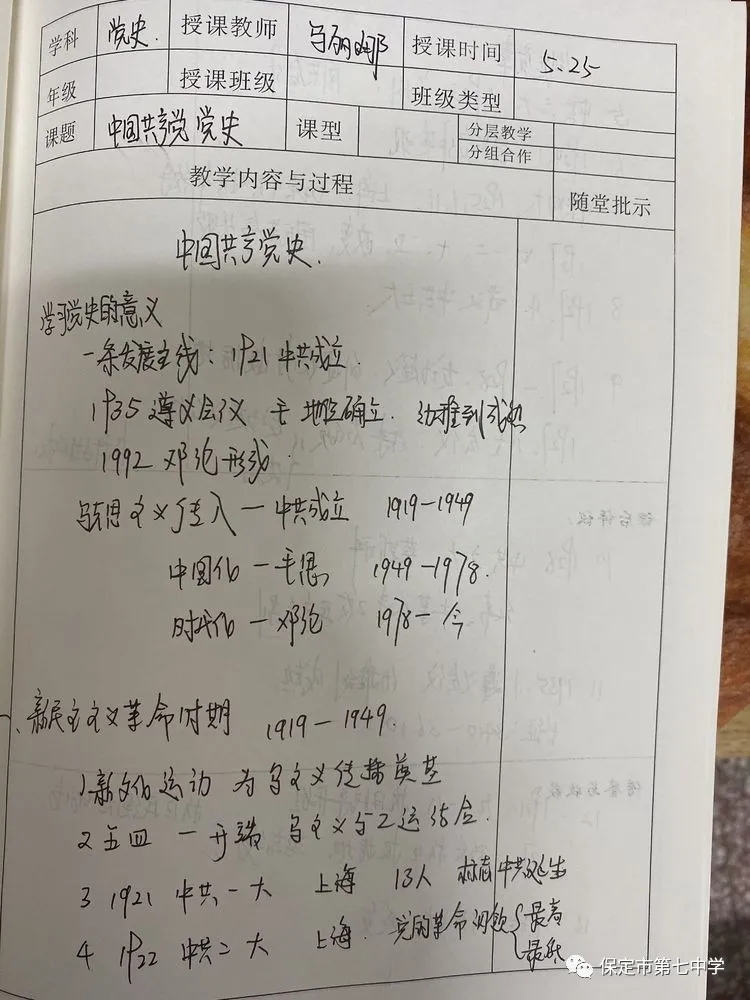 学科 党史. 授课教师 马丽娜 授课时间 5.25
年级 授课班级 班级类型
课题 中国共产党党史 课型 分层教学
分组合作
教学内容与过程 随堂批示
中国共产党史.
学习党史的意义
一条发展主线: 1921 中共成立.
1935 遵义会议 毛 地位确立. 幼稚到成熟
1992 邓论形成.
马克思主义传入 — 中共成立 1919—1949
中国化 — 毛思 1949—1978.
时代化 — 邓论 1978—今
一、新民主主义革命时期 1919—1949.
1 新文化运动 为马主义传播奠基
2 五四 — 开端 马主义与工运结合.
3 1921 中共一大 上海 13人 标志中共诞生
4 1922 中共二大 上海. 党的革命纲领 { 最高
最低
保定市第七中学